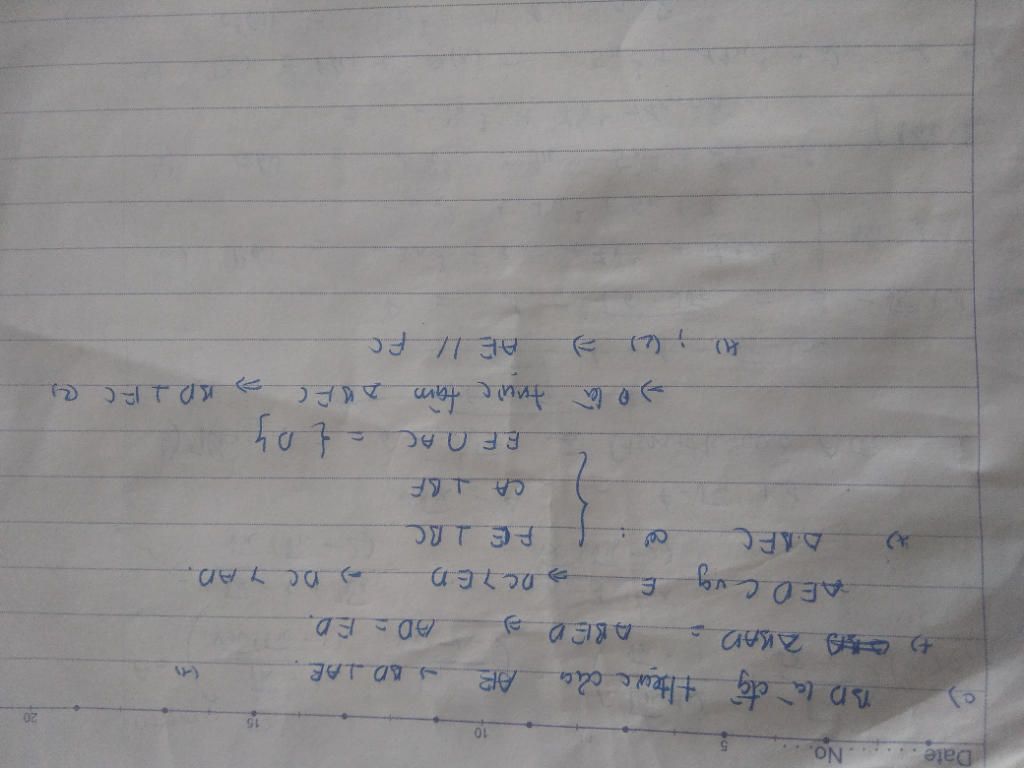 Date No.
5 10 15 20
c) BD là đg trực của AE → BD ⊥ AE. (1)
+) ΔBAD = ΔBED ⇒ AD = ED.
ΔEDC vg E ⇒ DC > ED ⇒ DC > AD.
*) ΔBFC có : { FE ⊥ BC
CA ⊥ BF
EF ∩ AC = {D}
⇒ D là trực tâm ΔBFC ⇒ BD ⊥ FC (2)
(1) ; (2) ⇒ AE // FC